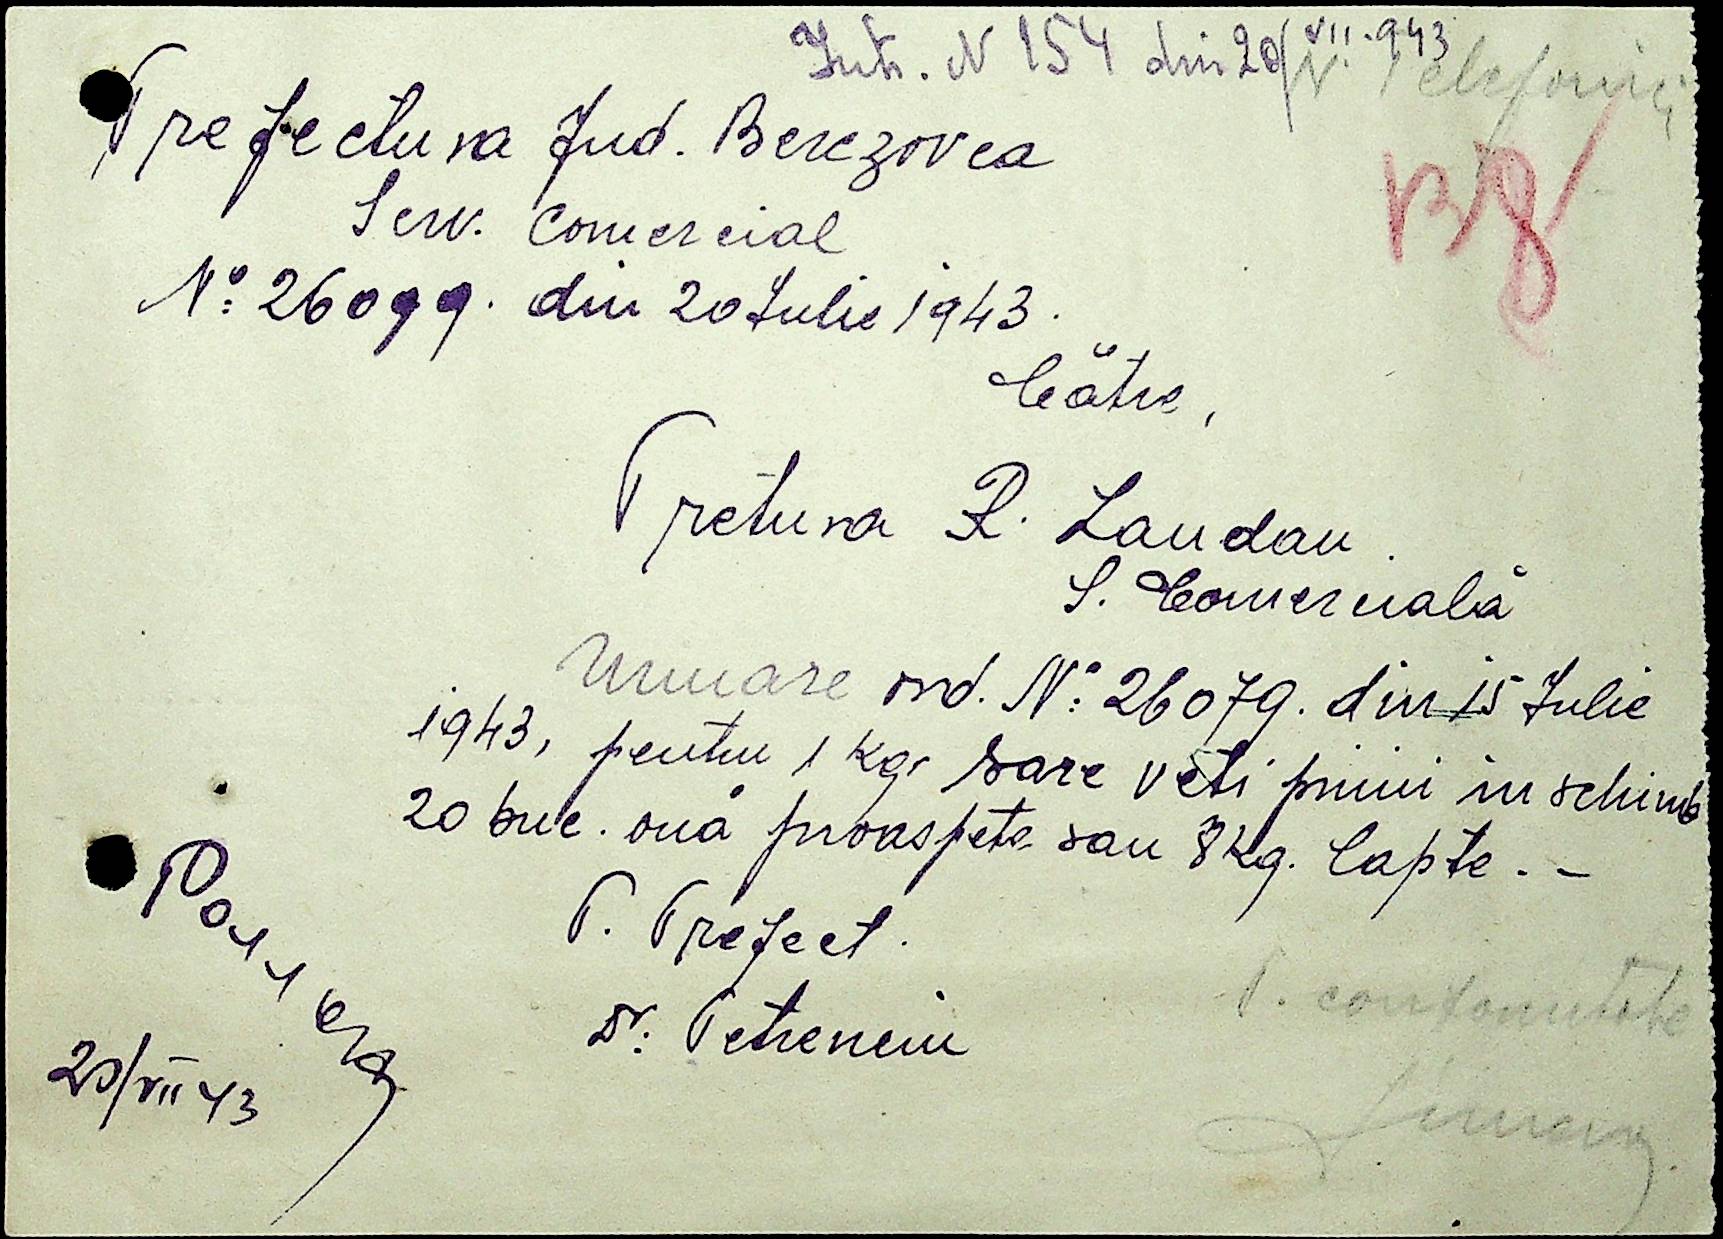 Intr. N 154 din 20/VII.943
N. Telefonică
Prefectura Jud. Berezovca
Serv. Comercial
Nº: 26099. din 20 Iulie 1943.
Către,
Pretura R. Landau.
S. Comercială
Urmare ord. Nº: 26079. din 15 Iulie
1943, pentru 1 kgr sare veti primi in schimb
20 buc. ouă proaspete sau 8 kg. lapte. -
P. Prefect.
Dr. Petrenciu
P. conformitate
20/VII 43